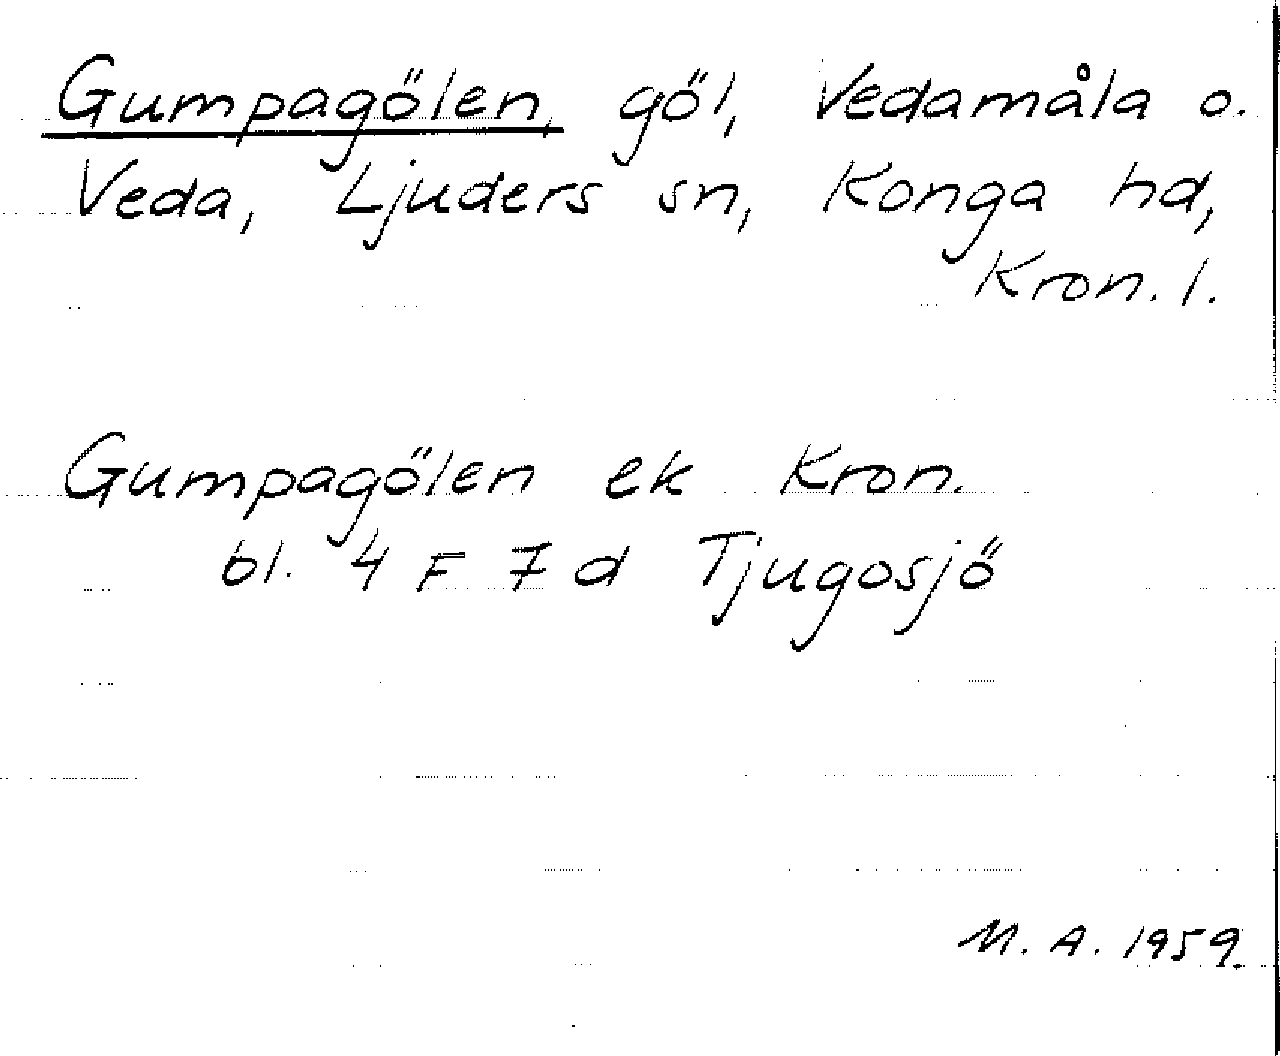 Gumpagölen, göl, Vedamåla o.
Veda, Ljuders sn, Konga hd,
Kron. l.
Gumpagölen ek Kron.
bl. 4 F 7 d Tjugosjö
M. A. 1959.